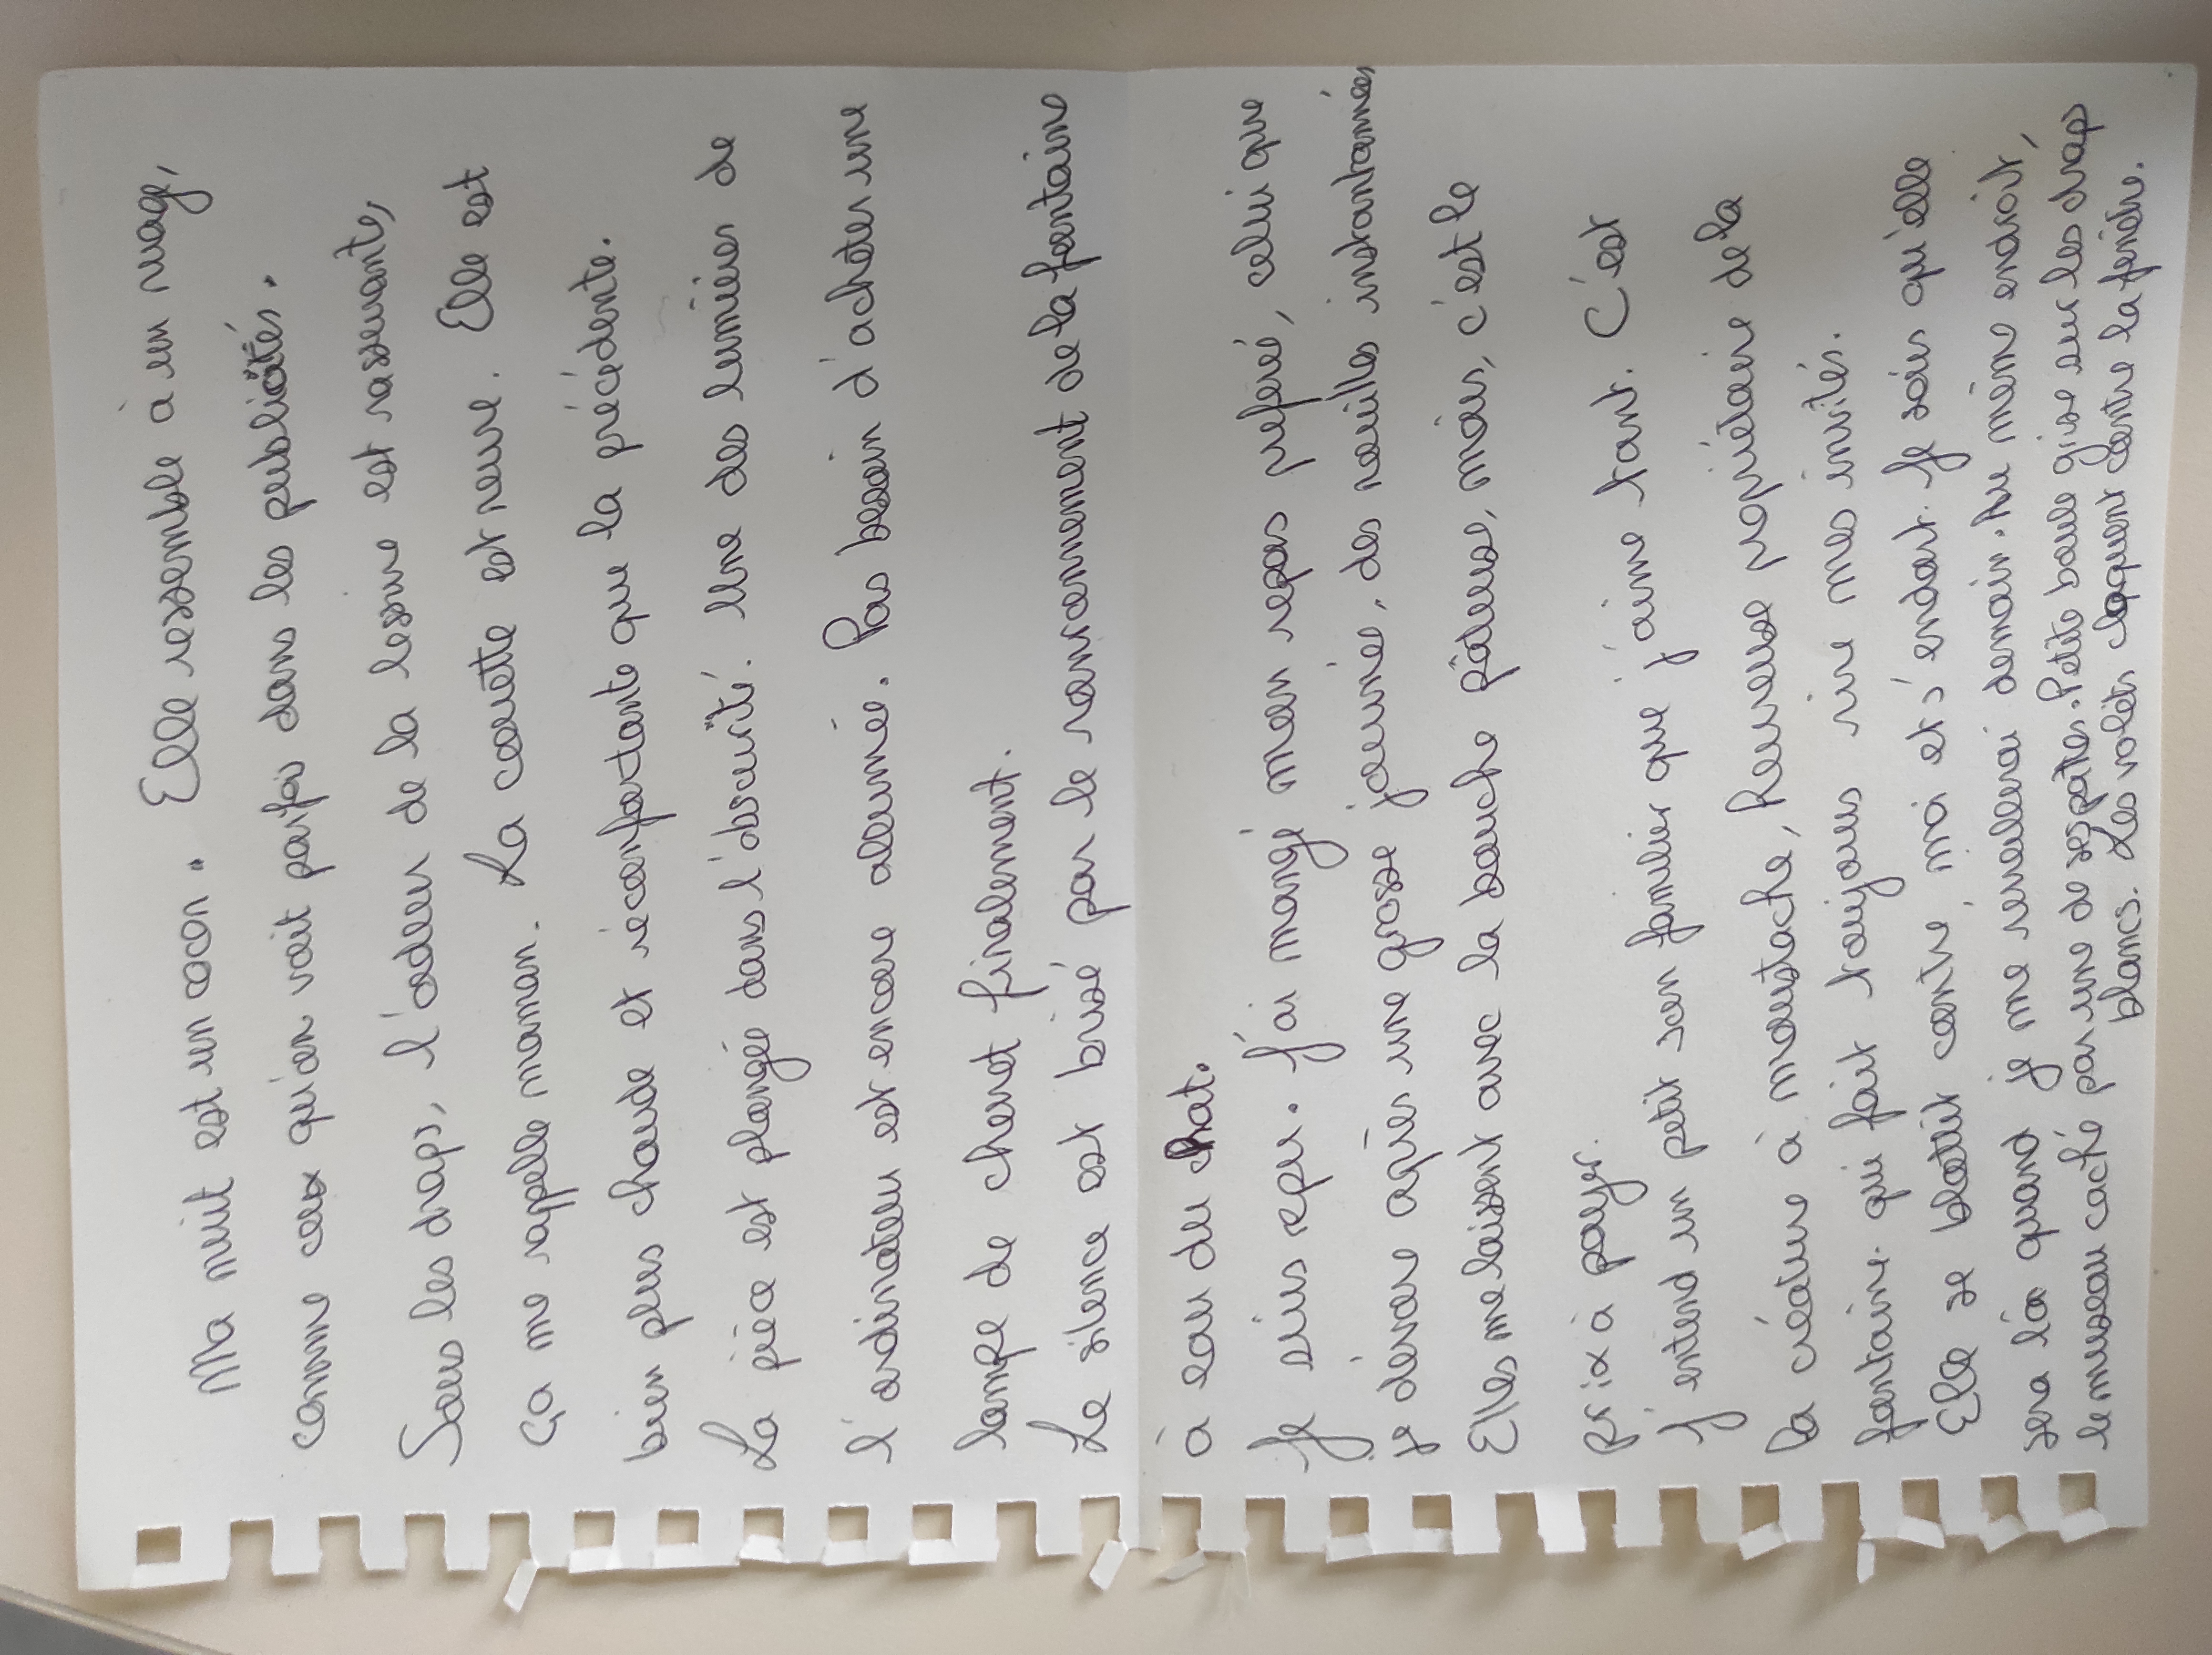 Ma nuit est un cocon. Elle ressemble à un nuage,
comme ceux qu'on voit parfois dans les publicités.
Sous les draps, l'odeur de la lessive est rassurante,
ça me rappelle maman. La couette est neuve. Elle est
bien plus chaude et réconfortante que la précédente.
La pièce est plongée dans l'obscurité. Une des lumières de
l'ordinateur est encore allumée. Pas besoin d'acheter une
lampe de chevet finalement.
Le silence est brisé par le ronronnement de la fontaine
à eau du chat.
Je suis repu. J'ai mangé mon repas préféré, celui que
je dévore après une grosse journée, des nouilles instantanées
Elles me laissent avec la bouche pâteuse, mais, c'est le
prix à payer.
J'entend un petit son familier que j'aime tant. C'est
la créature à moustache, heureuse propriétaire de la
fontaine qui fait toujours rire mes invités.
Elle se blottit contre moi et s'endort. Je sais qu'elle
sera là quand je me réveillerai demain. Au même endroit,
le museau caché par une de ses pattes. Petite boule grise sur les draps
blancs. Les volets claquent contre la fenêtre.